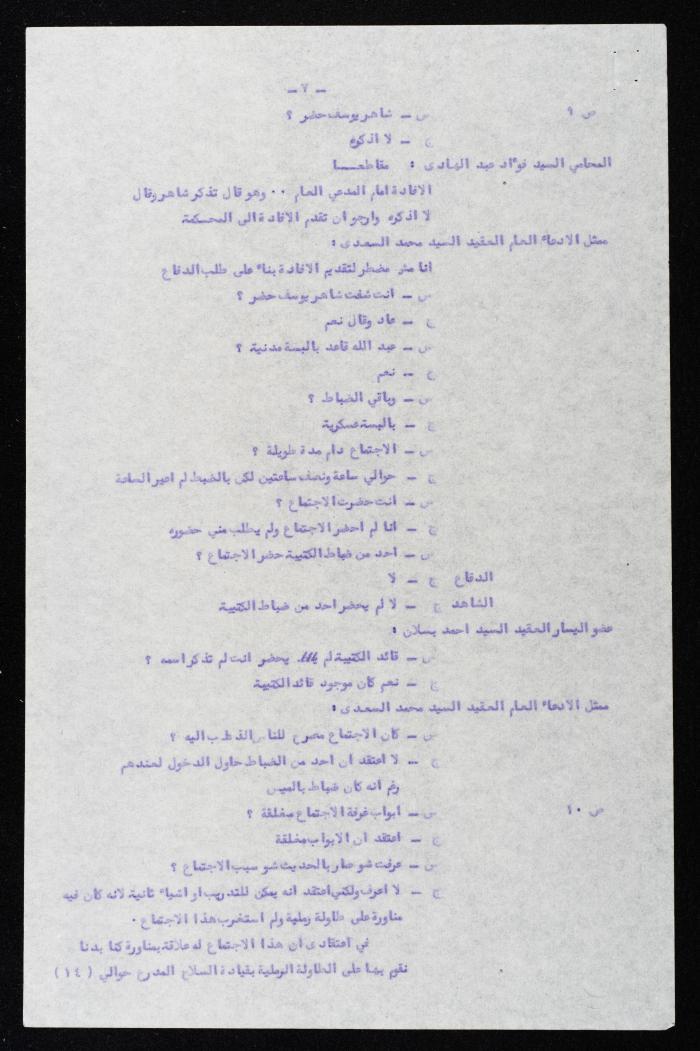 – ٧ –
ص ٩
س – شاهر يوسف حضر ؟
ج – لا اذكره
المحامي السيد فوءاد عبد الهادى : مقاطعـــا
الافادة امام المدعي العام ٠٠ وهو قال تذكر شاهر وقال
لا اذكره وارجو ان تقدم الافادة الى المحكمة
ممثل الادعاء العام العقيد السيد محمد السعدى :
انا مش مضطر لتقديم الافادة بناء على طلب الدفاع
س – انت شفت شاهر يوسف حضر ؟
ج – عاد وقال نعم
س – عبد الله قاعد بالبسة مدنية ؟
ج – نعم
س – وباقي الضباط ؟
ج – بالبسة عسكرية
س – الاجتماع دام مدة طويلة ؟
ج – حوالي ساعة ونصف ساعتين لكن بالضبط لم اعير الساعة
س – انت حضرت الاجتماع ؟
ج – انا لم احضر الاجتماع ولم يطلب مني حضوره
س – احد من ضباط الكتيبة حضر الاجتماع ؟
الدفاع ج – لا
الشاهد ج – لا لم يحضر احد من ضباط الكتيبة
عضو اليسار العقيد السيد احمد بسلان :
س – قائد الكتيبة لم يحضر انت لم تذكر اسمه ؟
ج – نعم كان موجود قائد الكتيبة
ممثل الادعاء العام العقيد السيد محمد السعدى :
س – كان الاجتماع مصرح للناس اليه ؟
ج – لا اعتقد ان احد من الضباط حاول الدخول لعندهم
رغم انه كان ضباط بالميس
ص ١٠
س – ابواب غرفة الاجتماع مغلقة ؟
ج – اعتقد ان الابواب مغلقة
س – عرفت شو صار بالحديث شو سبب الاجتماع ؟
ج – لا اعرف ولكني اعتقد انه يمكن للتدريب او اشياء ثانية لانه كان فيه
مناورة على طاولة رملية ولم استغرب هذا الاجتماع ٠
في اعتقادى ان هذا الاجتماع له علاقة بمناورة كنا بدنا
نقوم بها على الطاولة الرملية بقيادة السلاح المدرع حوالي ( ١٤ )